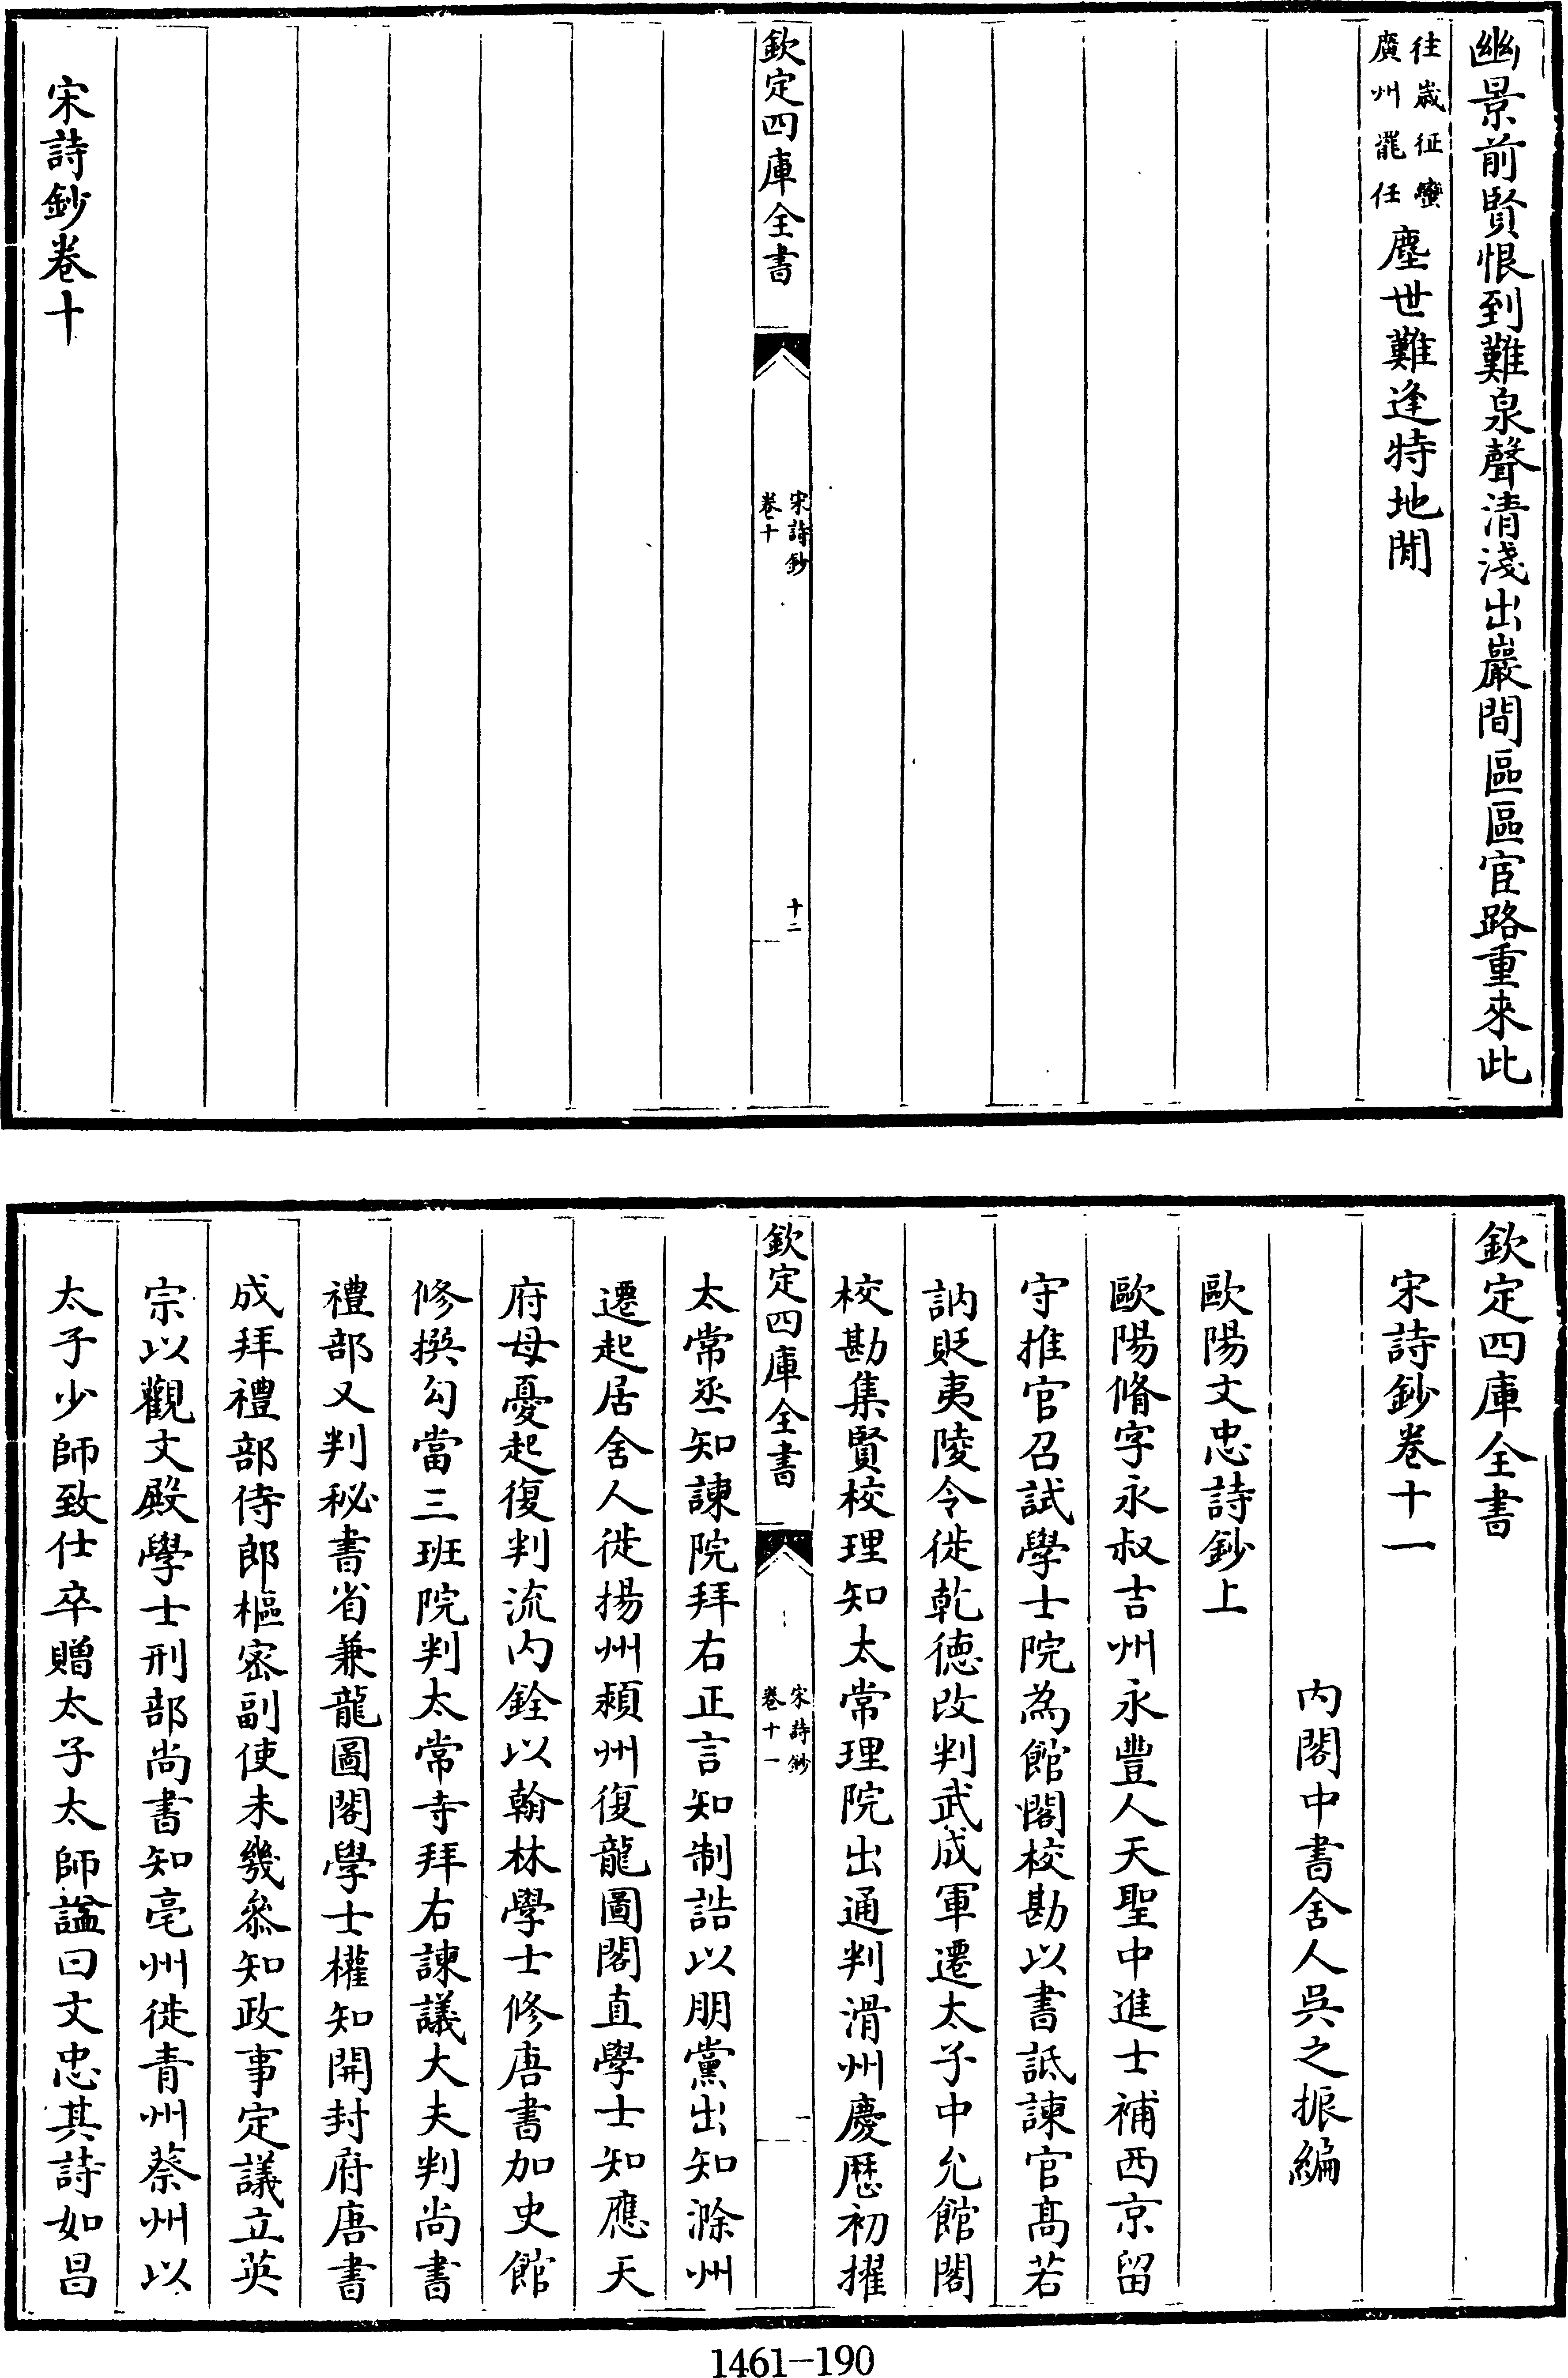 幽景前賢恨到難泉聲清淺出巖間區區宦路重來此
往歲征蠻
廣州罷任
塵世難逢特地閒
欽定四庫全書
宋詩鈔
卷十
十二
宋詩鈔卷十
欽定四庫全書
宋詩鈔卷十一
內閣中書舍人吳之振編
歐陽文忠詩鈔上
歐陽脩字永叔吉州永豐人天聖中進士補西京留
守推官召試學士院為館閣校勘以書詆諫官高若
訥貶夷陵令徙乾德改判武成軍遷太子中允館閣
校勘集賢校理知太常理院出通判滑州慶歴初擢
欽定四庫全書
宋詩鈔
卷十一
一
太常丞知諫院拜右正言知制誥以朋黨出知滁州
遷起居舍人徙揚州潁州復龍圖閣直學士知應天
府母憂起復判流內銓以翰林學士修唐書加史館
修撰勾當三班院判太常寺拜右諫議大夫判尚書
禮部又判秘書省兼龍圖閣學士權知開封府唐書
成拜禮部侍郎樞密副使未幾叅知政事定議立英
宗以觀文殿學士刑部尚書知亳州徙青州蔡州以
太子少師致仕卒贈太子太師諡曰文忠其詩如昌
1461-190